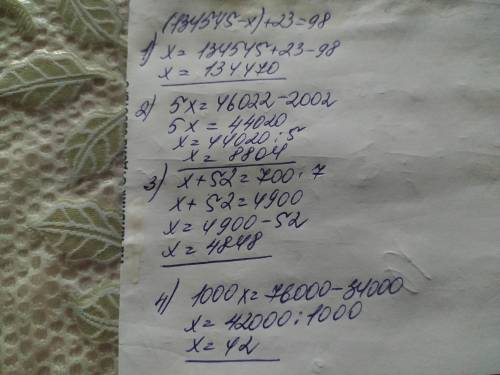 (134545-x)+23=98
1) x = 134545+23-98
x = 134470
2) 5x=46022-2002
5x = 44020
x = 44020:5
x = 8804
3) x+52=700·7
x+52=4900
x = 4900-52
x = 4848
4) 1000x=76000-34000
x=42000:1000
x=42